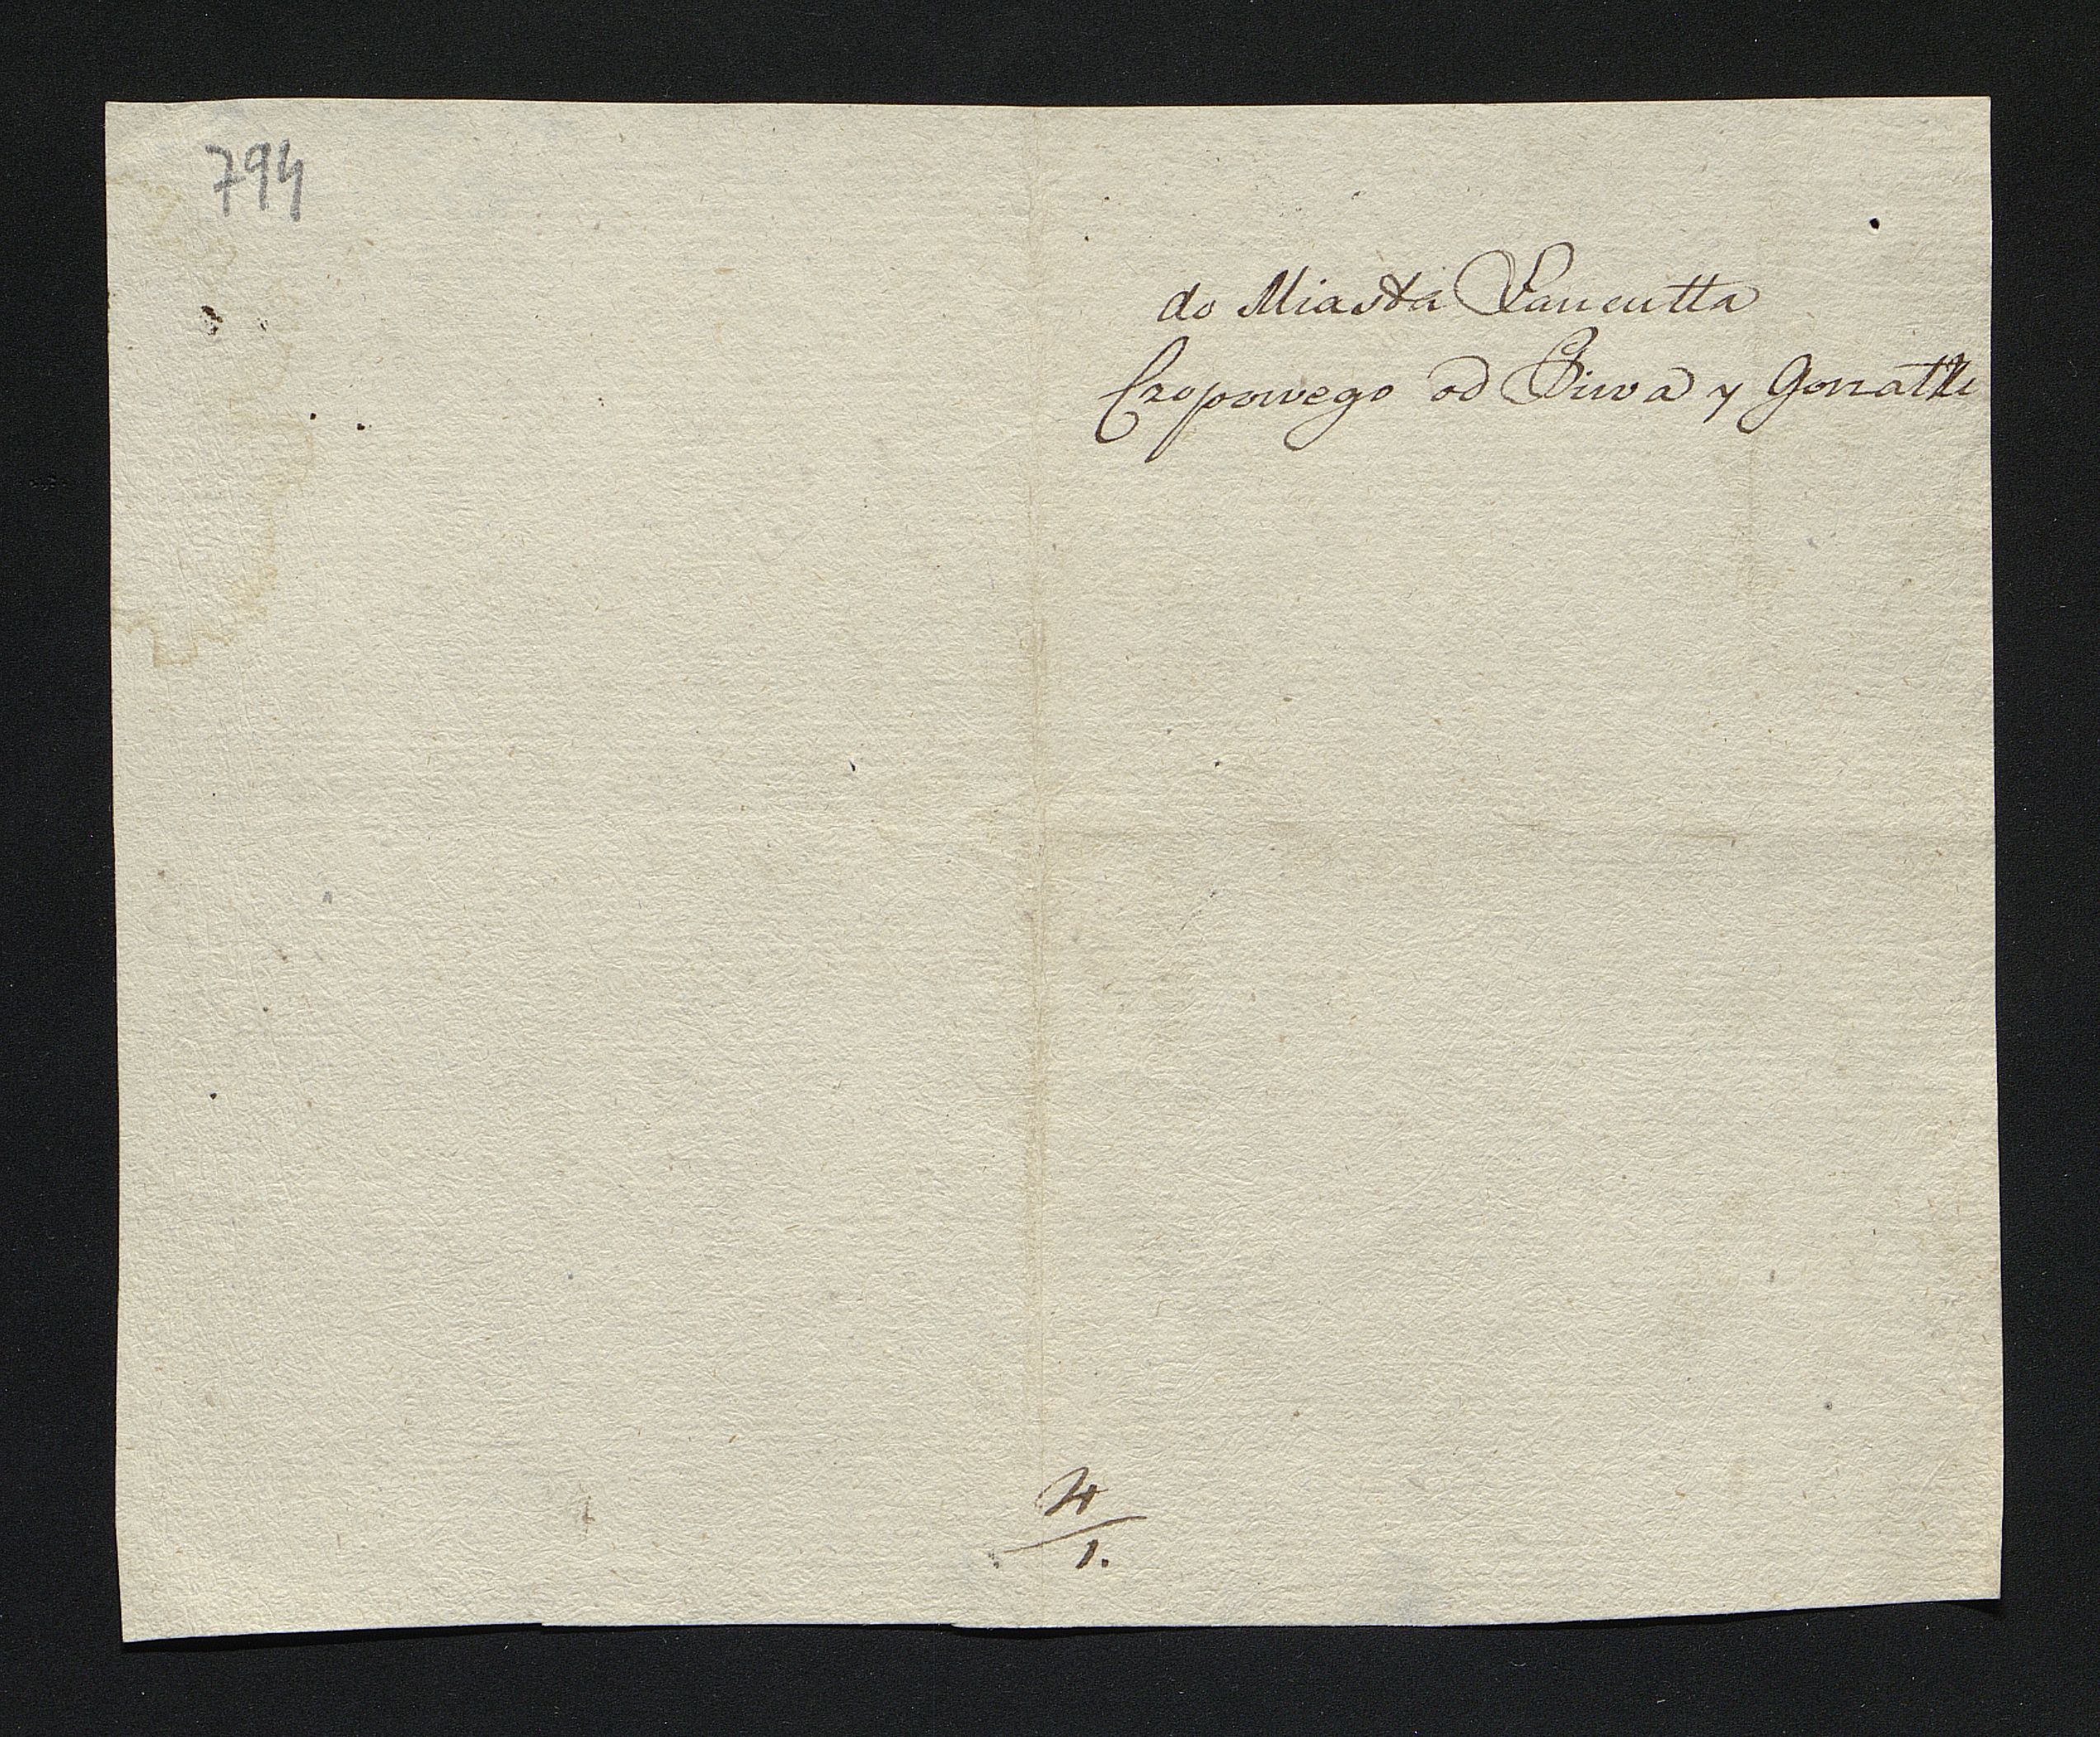 794
do Miasta Lancutta
Czopowego od Piwa y Gorzałki
4
1.